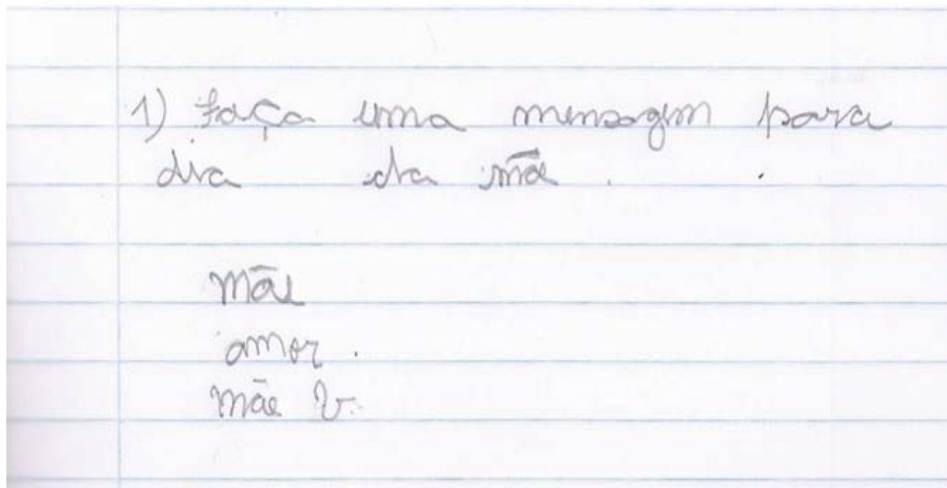 1) faça uma mensagem para
dia da mãe.
mãe
amor.
mãe v.